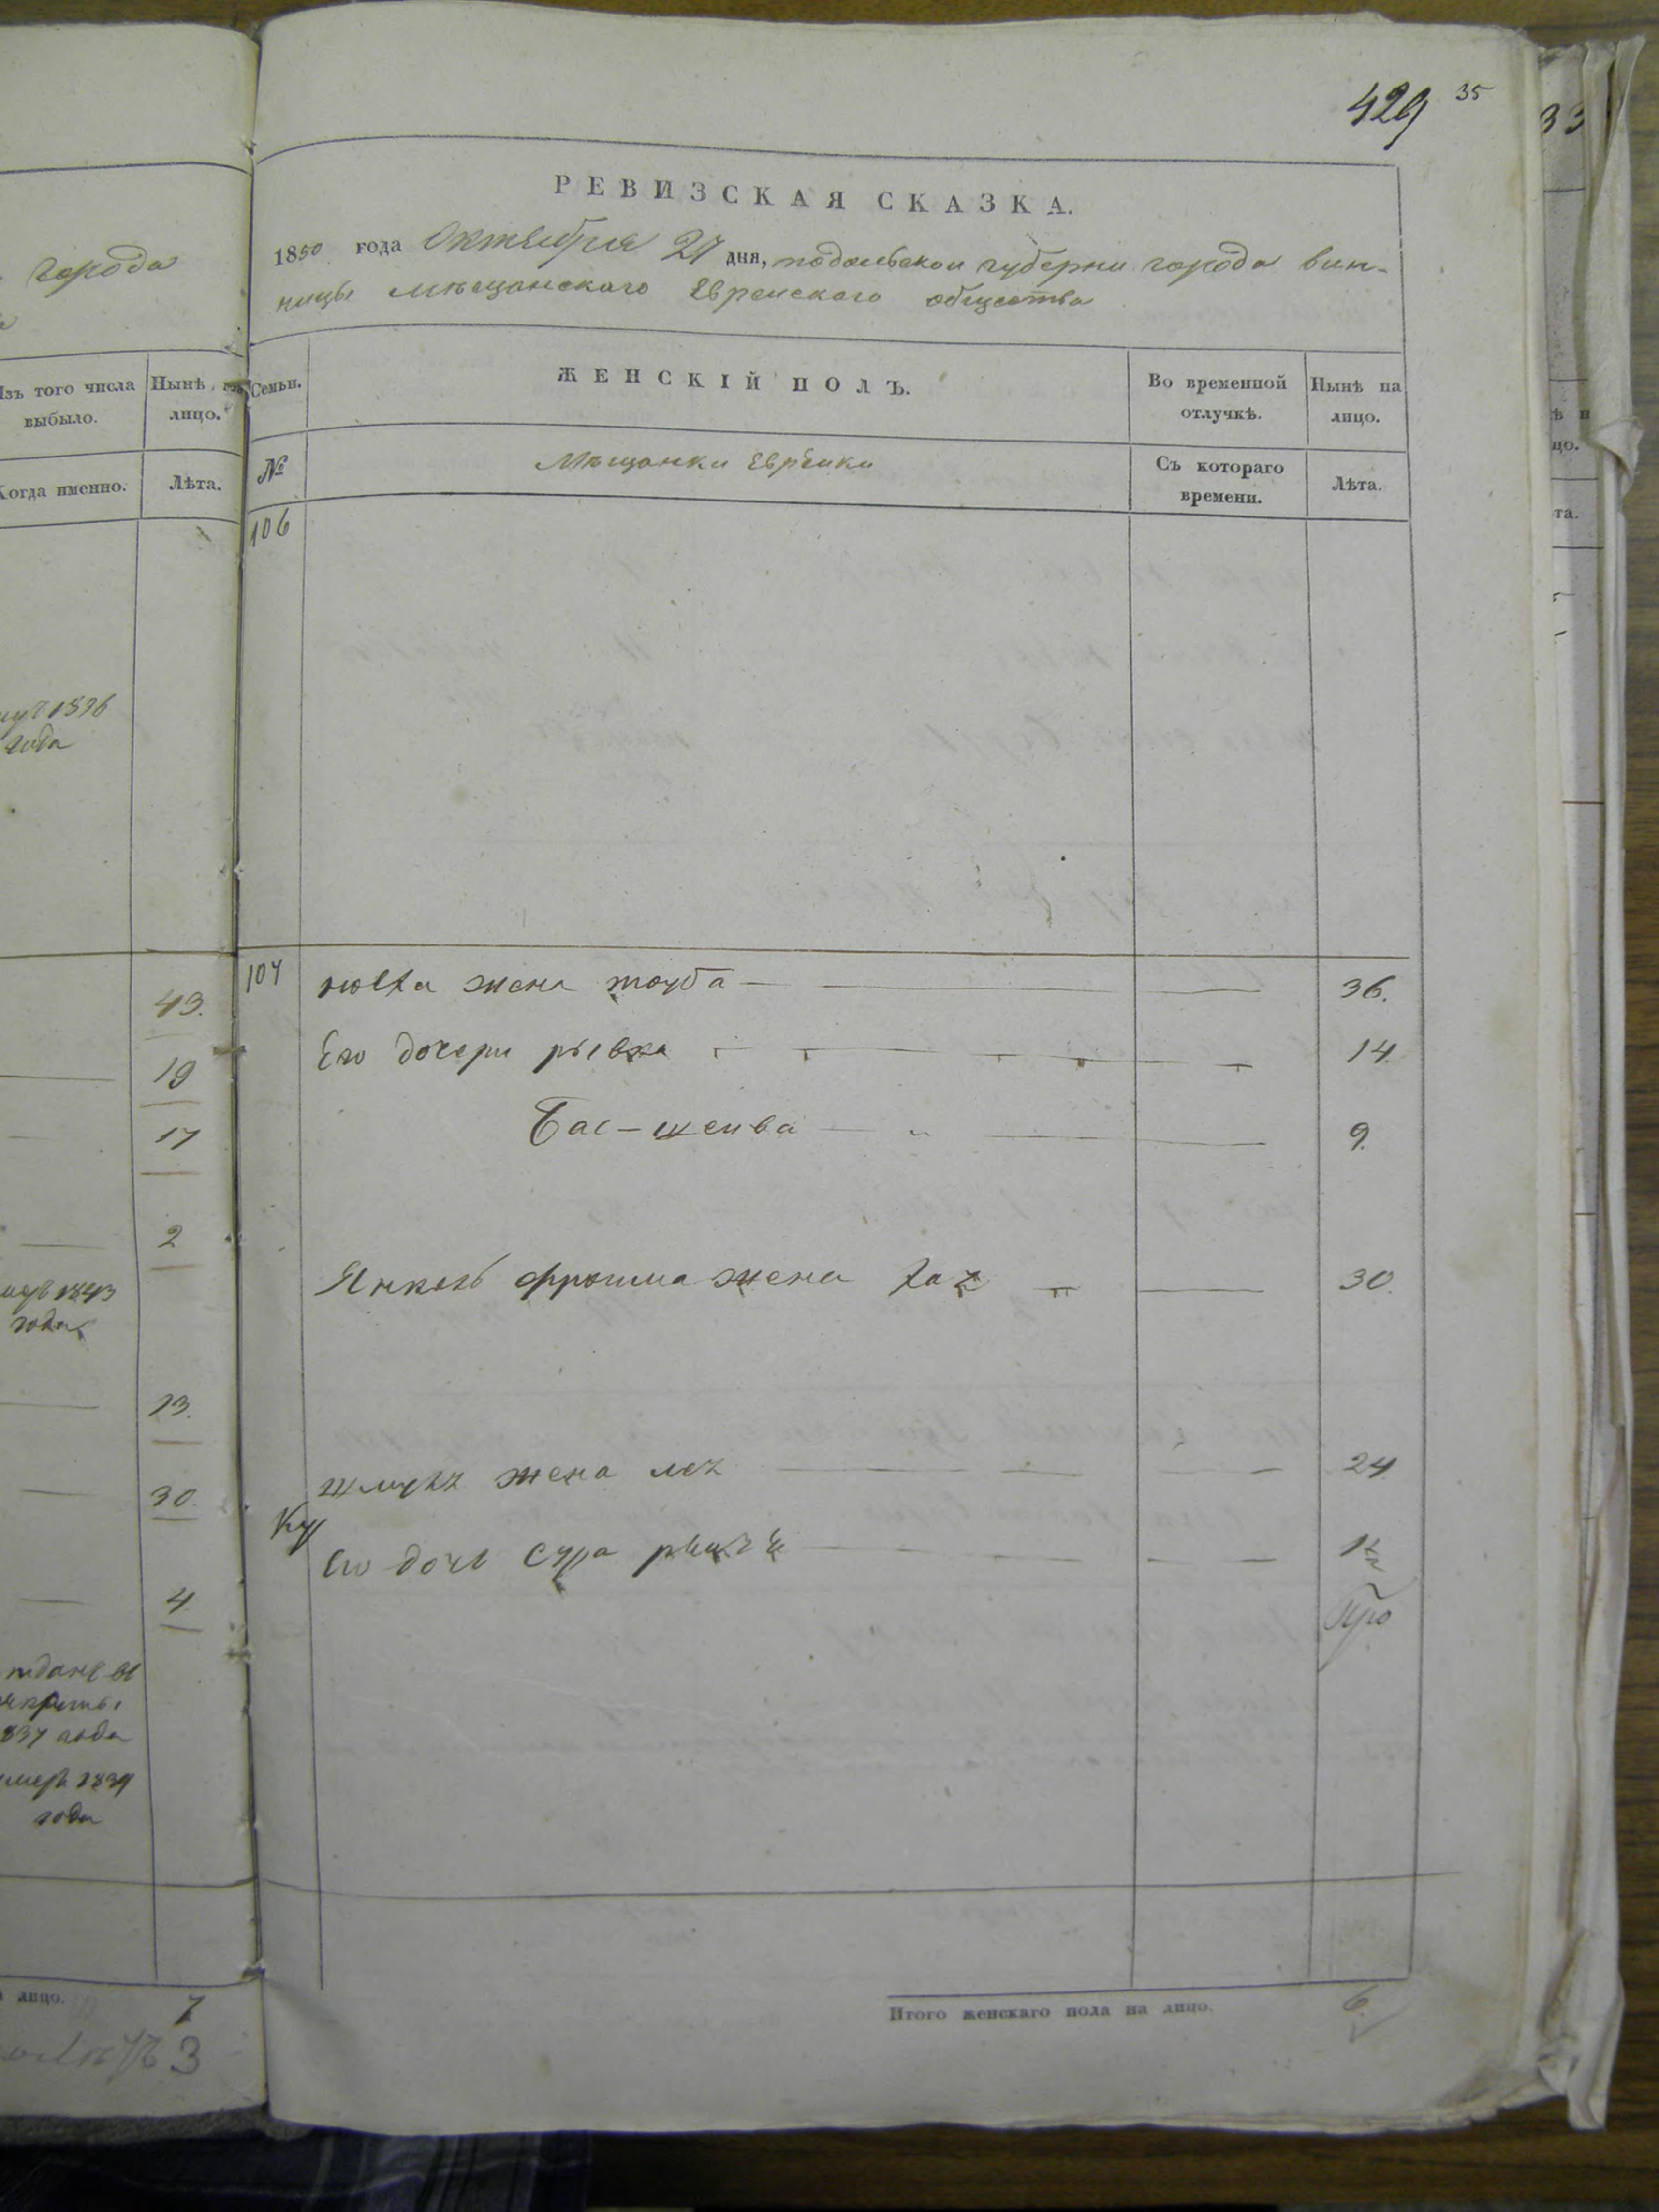 429 35
33
РЕВИЗСКАЯ СКАЗКА.
1850 года Октября 27 дня, подольской губерни города вин-
ницы мѣщанскаго Еврейскаго общества
города
Изъ того числа выбыло.
Нынѣ на лицо.
Когда именно.
Лѣта.
1836
года
43.
19
17
2
1843
года
13.
30.
4
837 года
умеръ 1839
года
лицо. 7
3
Семьи.
ЖЕНСКІЙ ПОЛЪ.
Во временной отлучкѣ.
Нынѣ на лицо.
№
Мѣщанки Еврейки
Съ котораго времени.
Лѣта.
106
107 жена тауба — — 36.
Его дочери рывка — — 14.
Бас-шейва — — 9.
Янкель фроима жена хая — — 30.
жена лея — — 24
Его дочь Сура — — 1½
Итого женскаго пола на лицо. 6.